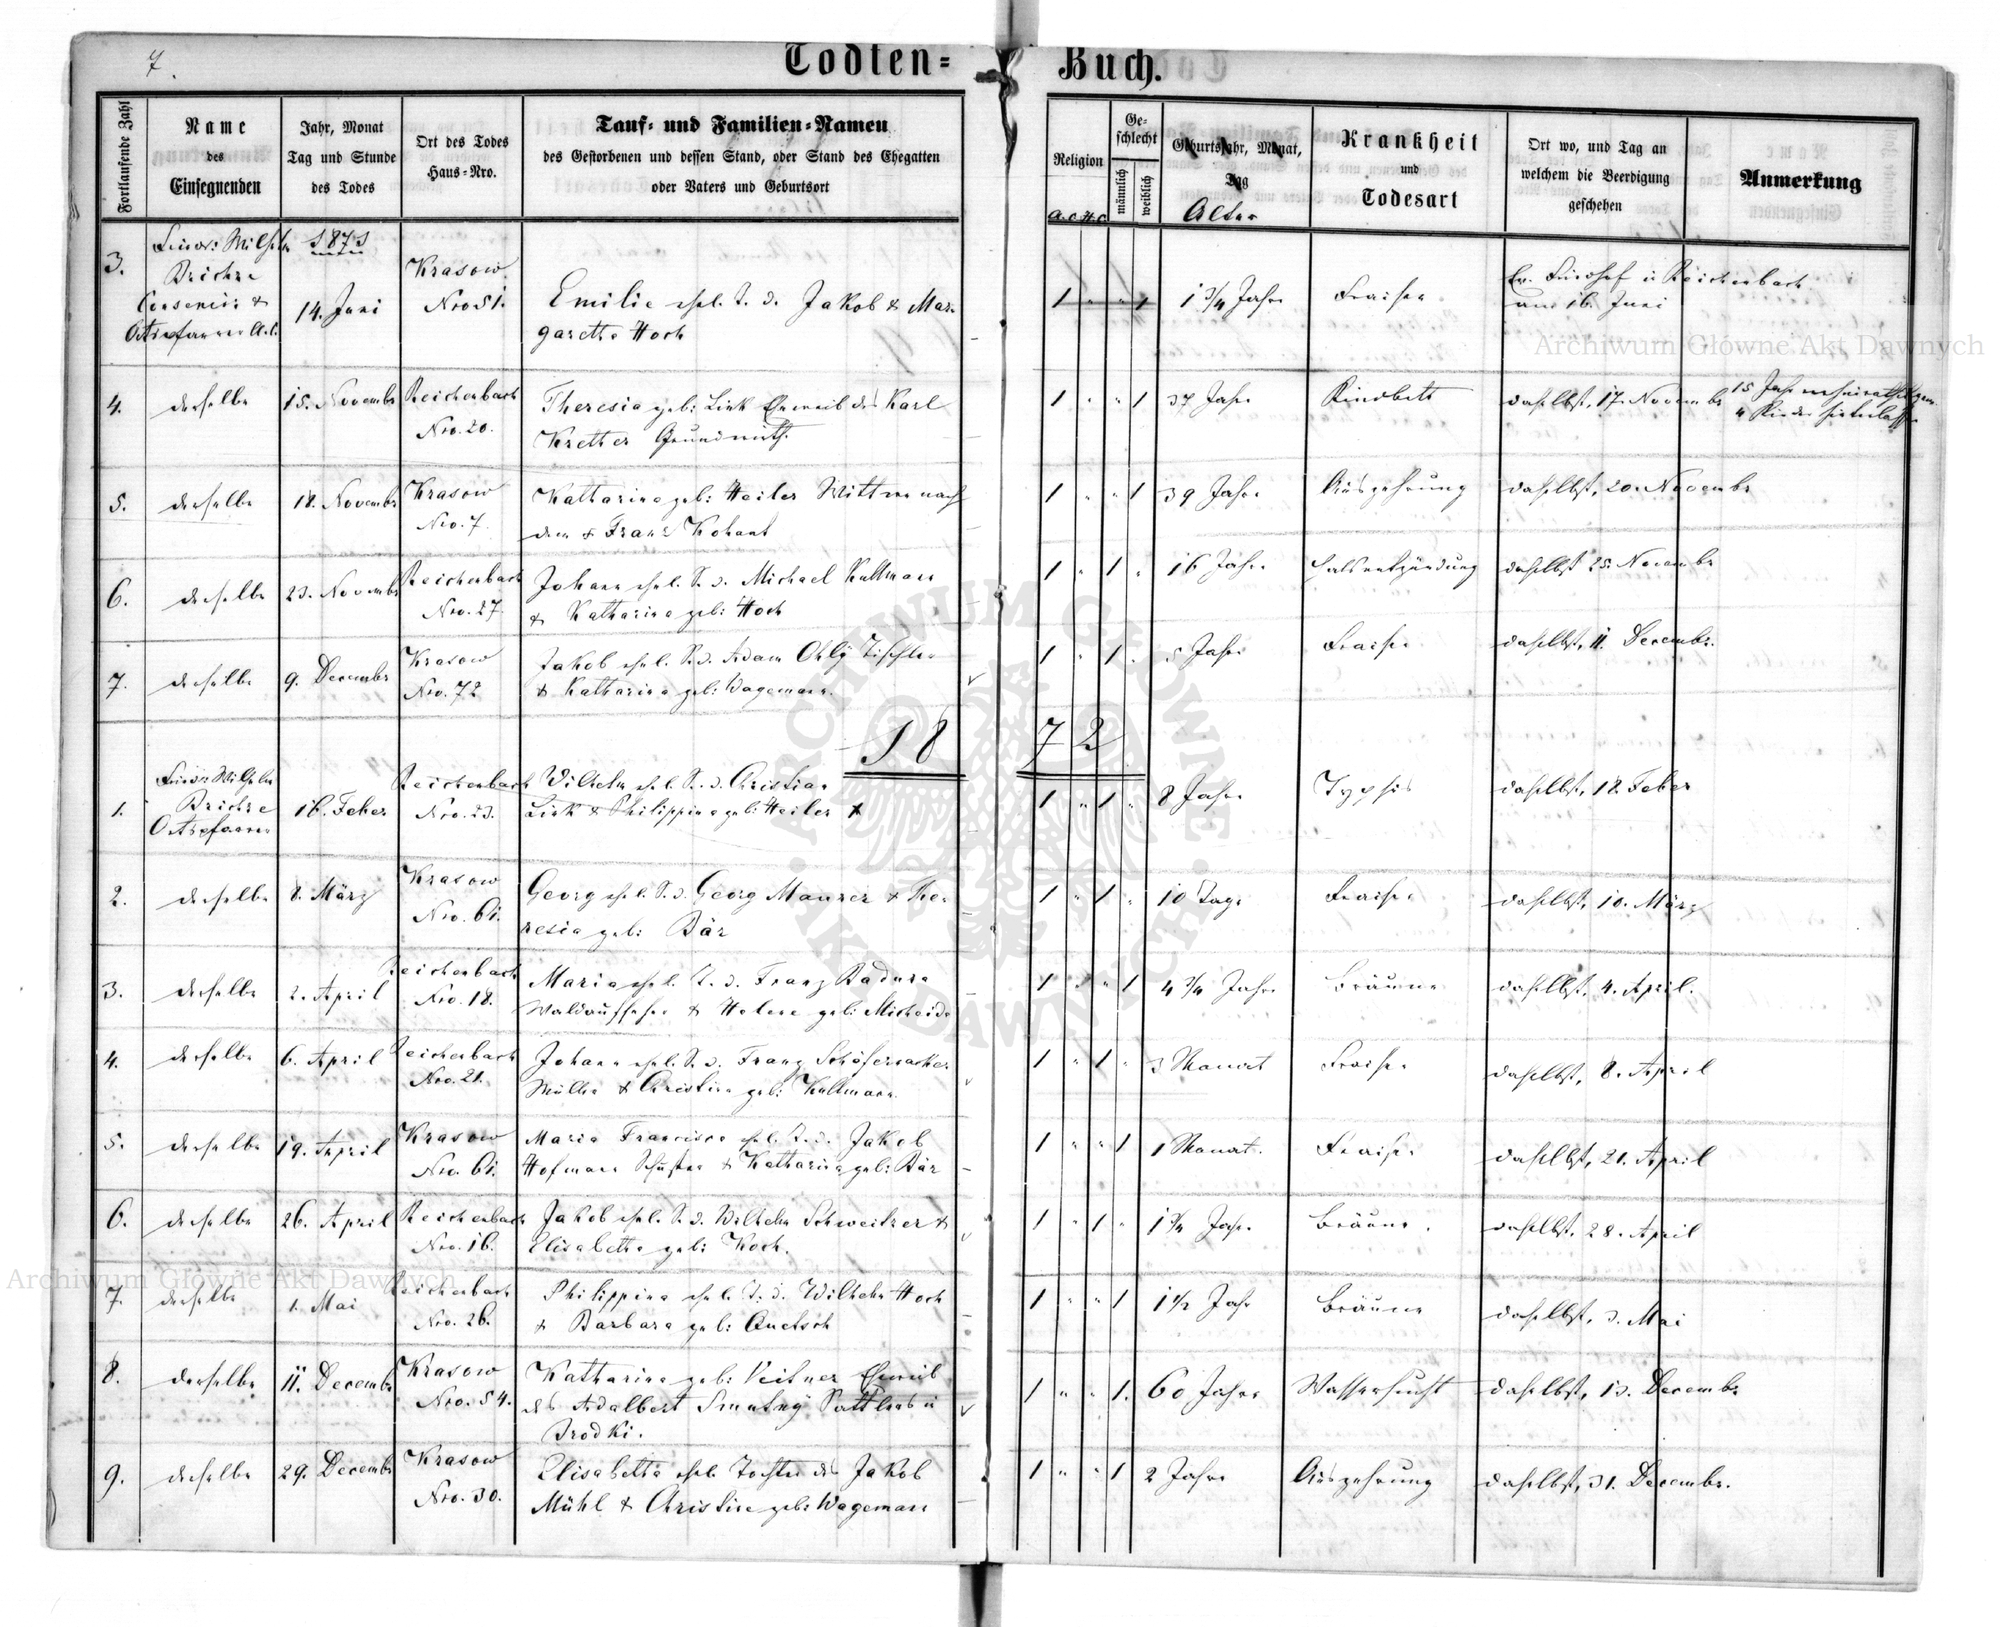 7.
Todten= Buch.
Fortlaufende Zahl
Name
des
Einsegnenden
Jahr, Monat
Tag und Stunde
des Todes
Ort des Todes
Haus=Nro.
Tauf= und Familien=Namen
des Gestorbenen und dessen Stand, oder Stand des Ehegatten
oder Vaters und Geburtsort
Religion
A.C. H.C.
Ge=
schlecht
männlich
weiblich
Geburtsjahr, Monat,
Tag
Alter
Krankheit
und
Todesart
Ort wo, und Tag an
welchem die Beerdigung
geschehen
Anmerkung
3.
Wilhelm
Ortspfarrer A.C.
1871
14. Juni
Krasow
Nro 51.
Emilie ehel. T. d. Jakob & Mar=
garetha Hoch
1 " " 1
1 3/4 Jahre
Fraisen
Ev. Friedhof in Reichenbach
am 16. Juni
4.
derselbe
15. Novembr
Reichenbach
Nro. 20.
Theresia geb: Link Eheweib des Karl
Kretter Grundwirth.
1 " " 1
37 Jahre
Kindbett
daselbst, 17. Novembr
15 Jahr verheirathet gew.
4 Kinder hinterlassen
5.
derselbe
18. Novembr
Krasow
Nro. 7
Katharina geb: Heiler Wittwe nach
dem + Franz Kohaut
1 " " 1
39 Jahre
Auszehrung
daselbst, 20. Novembr
6.
derselbe
23. Novembr
Reichenbach
Nro. 27.
Johann ehel. S. d. Michael Kullmann
& Katharina geb: Hoch
1 " 1 "
16 Jahre
Halsentzündung
daselbst 25. Novembr
7.
derselbe
9. Decembr
Krasow
Nro. 72
Jakob ehel. S. d. Adam Ohlÿ Tischler
& Katharina geb: Wagemann.
1 " 1 "
5 Jahre
Fraisen
daselbst, 11. Decembr.
1872
1.
Wilhelm
Ortspfarrer
16. Feber
Reichenbach
Nro. 23.
Wilhelm ehel. S. d. Christian
Link & Philippina geb: Heiler
1 " 1 "
8 Jahre
Typhus
daselbst, 18. Feber
2.
derselbe
8. März
Krasow
Nro. 61.
Georg ehel. S. d. Georg Maurer & The=
resia geb: Bär
1 " 1 "
10 Tage
Fraisen
daselbst, 10. März
3.
derselbe
2. April
Reichenbach
Nro. 18.
Maria ehel. T. d. Franz Badura
Waldaufseher & Helene geb:
1 " " 1
4 3/4 Jahre
Bräune
daselbst, 4. April.
4.
derselbe
6. April
Reichenbach
Nro. 21.
Johann ehel. S. d. Franz
Müller & Christina geb: Kullmann.
1 " 1 "
3 Monat
Fraisen
daselbst, 8. April
5.
derselbe
19. April
Krasow
Nro. 61.
Maria Francisca ehel. T. d. Jakob
Hofmann Schuster & Katharina geb: Bär
1 " " 1
1 Monat.
Fraisen
daselbst, 21. April
6.
derselbe
26. April
Reichenbach
Nro. 16.
Jakob ehel. S. d. Wilhelm Schweitzer &
Elisabetha geb: Koch.
1 " 1 "
1 3/4 Jahr
Bräune.
daselbst, 28. April
7.
derselbe
1. Mai
Reichenbach
Nro. 26.
Philippina ehel. T. d. Wilhelm Hoch
& Barbara geb: Quetsch
1 " " 1
1 1/2 Jahr
Bräune
daselbst, 3. Mai
8.
derselbe
11. Decembr
Krasow
Nro. 54.
Katharina geb: Eheweib
des Adalbert Smutnÿ in
Brodki.
1 " " 1.
60 Jahre
Wassersucht
daselbst, 13. Decembr
9.
derselbe
29. Decembr
Krasow
Nro. 30.
Elisabetha ehel. Tochter des Jakob
Mühl & Christine geb: Wagemann
1 " " 1
2 Jahre
Auszehrung
daselbst, 31. Decembr.
ARCHIWUM GŁÓWNE AKT DAWNYCH
Archiwum Główne Akt Dawnych
Archiwum Główne Akt Dawnych